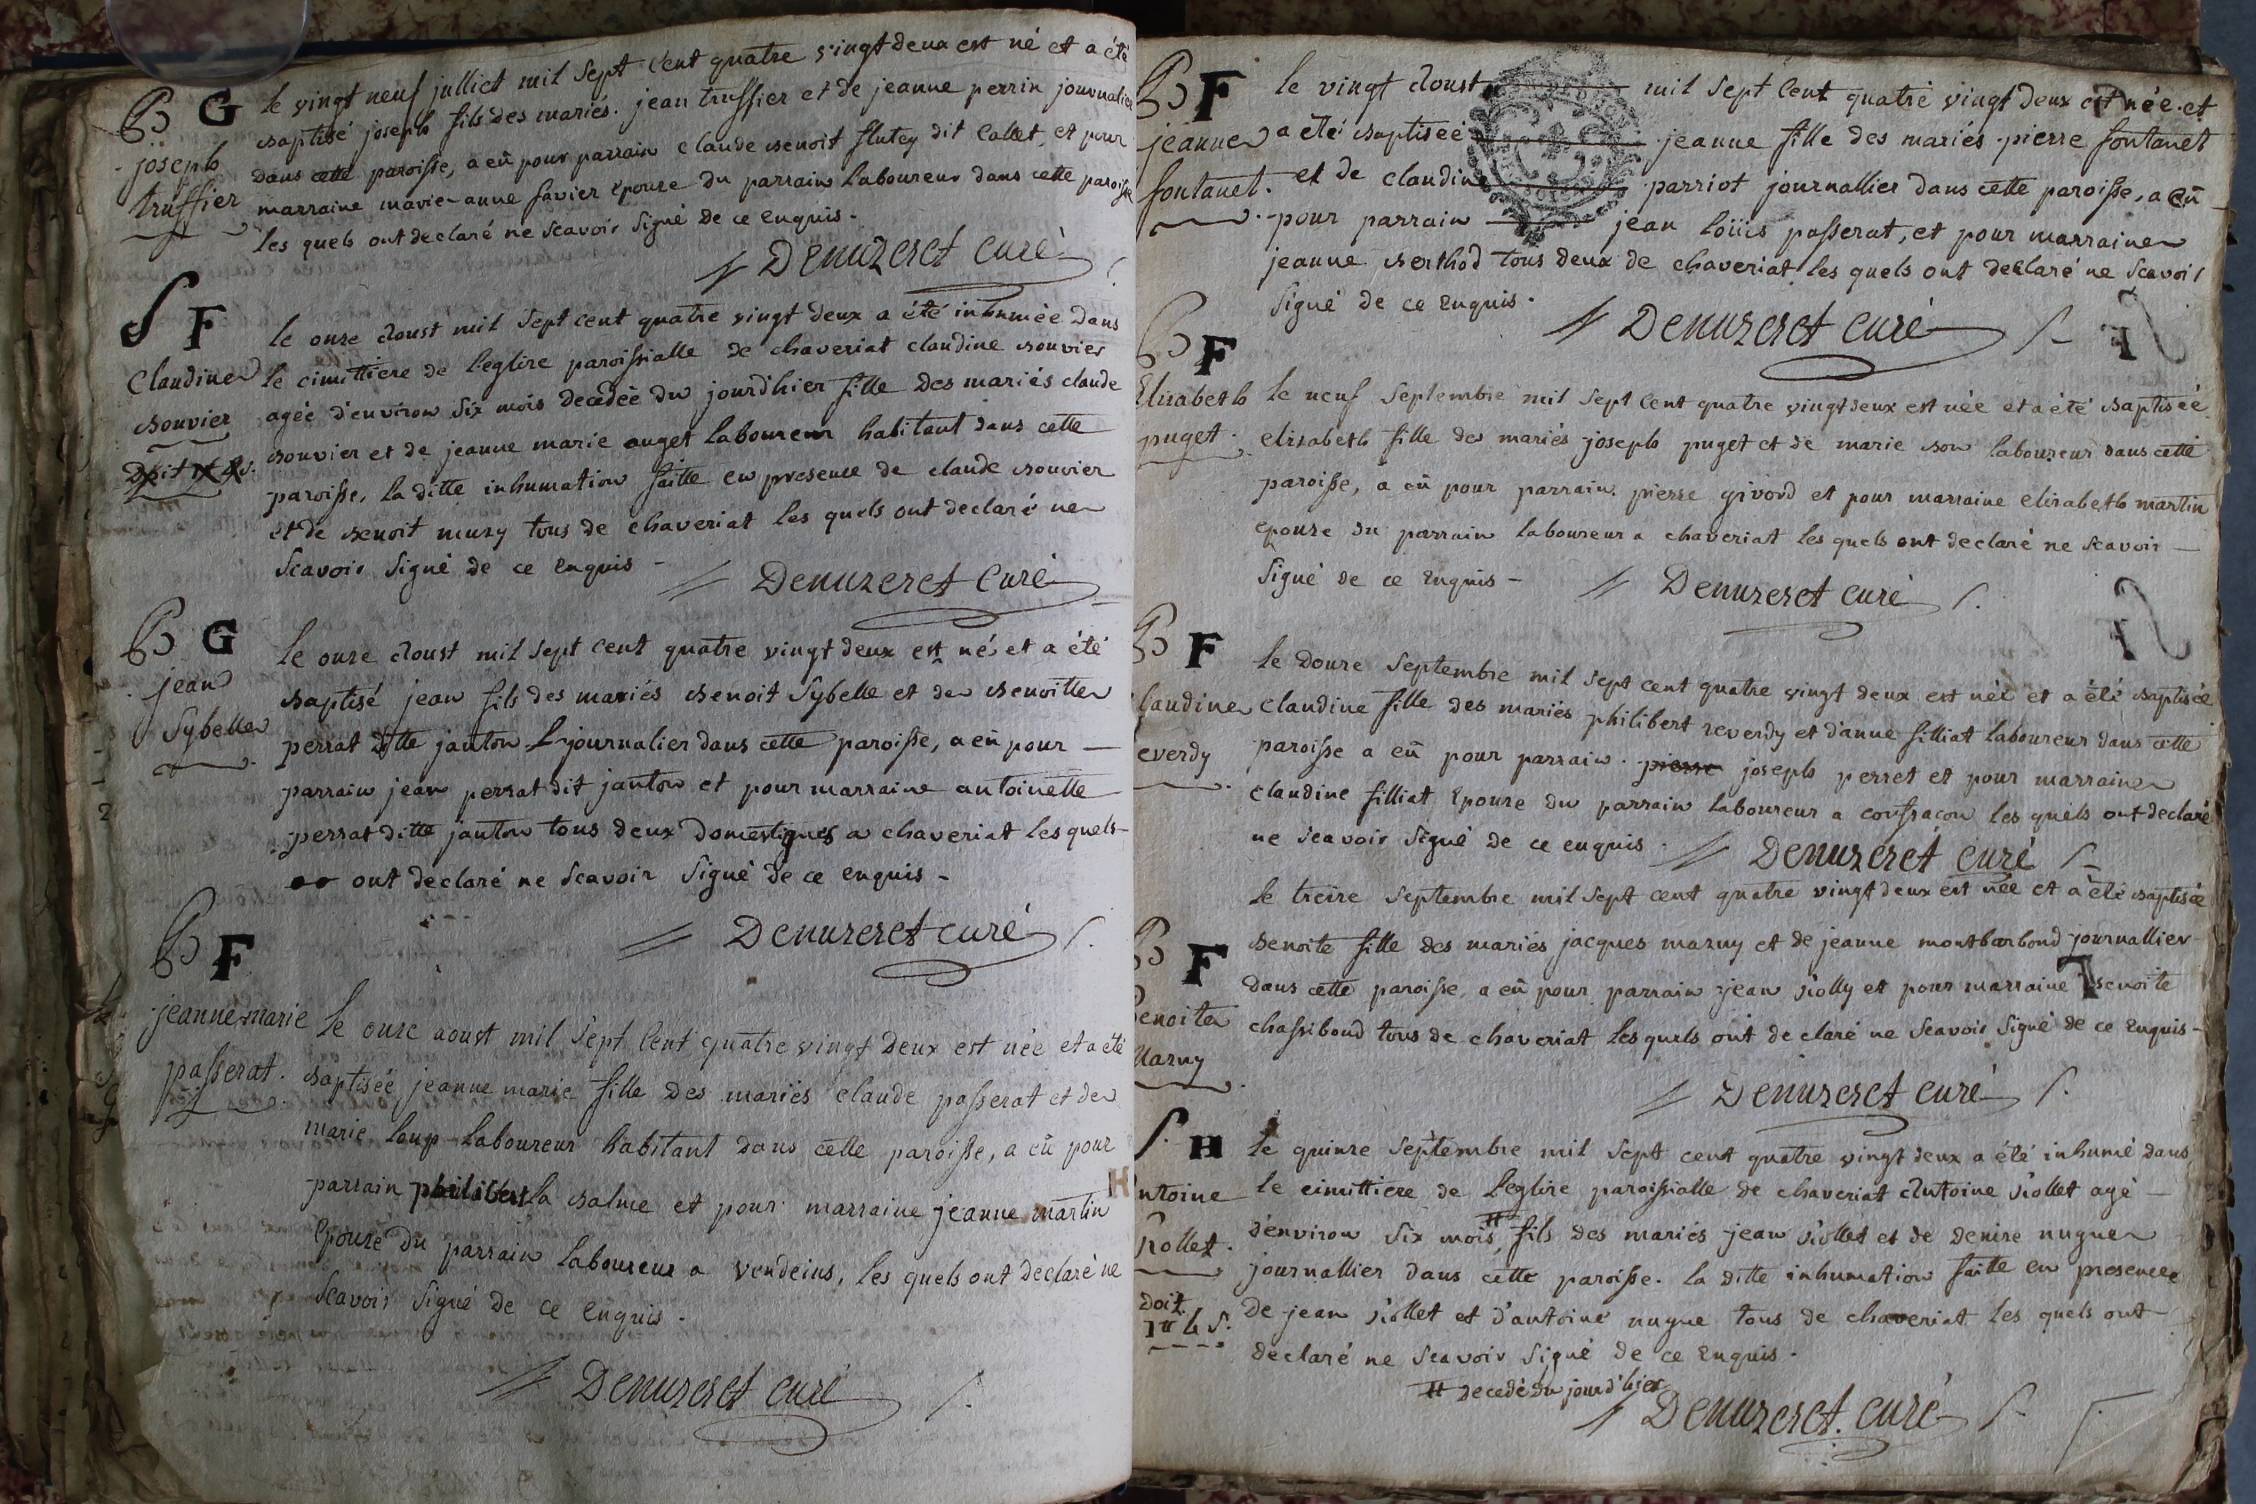 B G
joseph
truffier
le vingt neuf julliet mil sept cent quatre vingt deux est né et a été
baptisé joseph fils des mariés jean truffier et de jeanne perrin journalier
dans cette paroisse, a eû pour parrain claude benoit flutey dit Callet, et pour
marraine marie anne favier epouze du parrain laboureur dans cette paroisse
les quels ont declaré ne scavoir signé de ce enquis.
Denuzeret curé
S F
Claudine
bouvier
le onze aoust mil sept cent quatre vingt deux a été inhumée dans
le cimittiere de l'eglize paroissialle de chaveriat claudine bouvier
agée d'environ six mois decedée du jourd'hier fille des mariés claude
bouvier et de jeanne marie auget laboureur habitant dans cette
paroisse, la ditte inhumation faitte en presence de claude bouvier
et de benoit muzy tous de chaveriat les quels ont declaré ne
scavoir signé de ce enquis -
Denuzeret curé
B G
jean
Sybelle
le onze aoust mil sept cent quatre vingt deux est né et a été
baptisé jean fils des mariés benoit Sybelle et de benoitte
perrat ditte janton journalier dans cette paroisse, a eû pour —
parrain jean perrat dit janton et pour marraine antoinette
perrat ditte janton tous deux domestiques a chaveriat les quels
ont declaré ne scavoir signé de ce enquis -
Denuzeret curé
B F
jeanne marie
passerat.
le onze aoust mil sept cent quatre vingt deux est née et a été
baptisée jeanne marie fille des mariés claude passerat et de
marie loup laboureur habitant dans cette paroisse, a eû pour
parrain philibert la balme et pour marraine jeanne martin
epouze du parrain laboureur a vendeins, les quels ont declaré ne
scavoir signé de ce enquis.
Denuzeret curé
B F
jeanne
fontanet.
le vingt aoust mil sept cent quatre vingt deux est née et
a été baptiseé jeanne fille des mariés pierre fontanet
et de claudine parriot journallier dans cette paroisse, a eû
pour parrain jean loüis passerat, et pour marraine
jeanne berthod tous deux de chaveriat les quels ont declaré ne scavoir
signé de ce enquis.
Denuzeret curé
B F
Elizabeth
puget.
le neuf septembre mil sept cent quatre vingt deux est née et a été baptisée
elizabeth fille des mariés joseph puget et de marie bon laboureur dans cette
paroisse, a eû pour parrain pierre givord et pour marraine elizabeth martin
epouze du parrain laboureur a chaveriat les quels ont declaré ne scavoir —
signé de ce enquis -
Denuzeret curé
B F
laudine
everdy
le douze septembre mil sept cent quatre vingt deux est née et a été baptisée
claudine fille des mariés philibert reverdy et d'anne filliat laboureur dans cette
paroisse a eû pour parrain pierre joseph perret et pour marraine
claudine filliat epouze du parrain laboureur a confracon les quels ont declaré
ne scavoir signé de ce enquis.
Denuzeret curé
B F
enoite
Mazuy
le treize septembre mil sept cent quatre vingt deux est née et a été baptisée
benoite fille des mariés jacques mazuy et de jeanne montbarbond journallier
dans cette paroisse, a eû pour parrain jean violly et pour marraine benoite
chassibond tous de chaveriat les quels ont declaré ne scavoir signé de ce enquis -
Denuzeret curé
S. H
ntoine
doit
le quinze septembre mil sept cent quatre vingt deux a été inhumé dans
le cimittiere de l'eglize paroissialle de chaveriat Antoine viollet agé —
d'environ six mois # fils des mariés jean viollet et de denize nugue
journallier dans cette paroisse. la ditte inhumation faitte en presence
de jean viollet et d'antoine nugue tous de chaveriat les quels ont
declaré ne scavoir signé de ce enquis.
# decedé du jour d'hier
Denuzeret curé